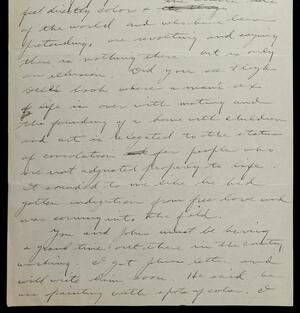 feel directly color &
of the world and who have been
pretending, are revolting and saying
there is nothing there: art is only
an illusion. Did you see Floyd
Dell's book where a man's sex
life is over with mating and
the founding of a home with children
and art is relegated to the status
of consolation for people who
are not adjusted properly to life.
It sounded to me like he had
gotten indigestion from free love and
was coming into the fold.
You and John must be having
a grand time out there in the country
working. I got John's letter and
will write him soon. He said he
was painting with spots of color. I